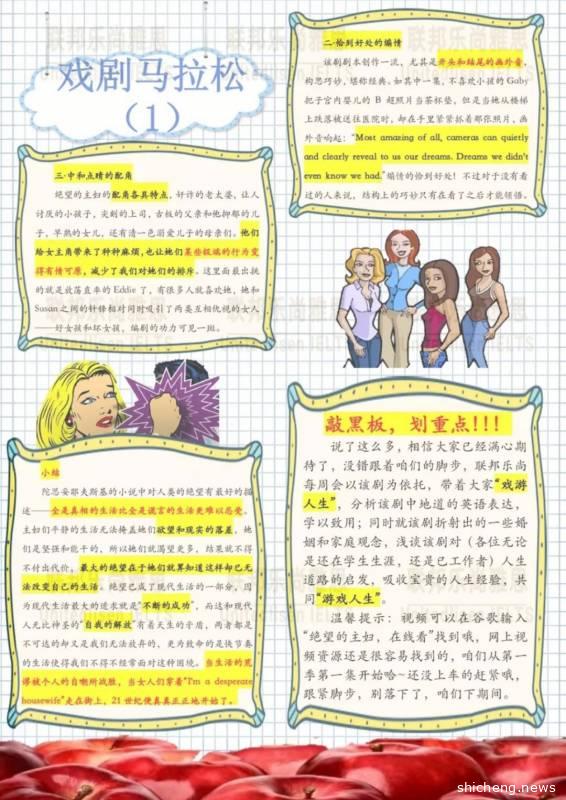 戏剧马拉松
（1）
二·恰到好处的煽情
该剧剧本创作一流，尤其是开头和结尾的画外音，
构思巧妙，堪称经典。如其中一集，不喜欢小孩的 Gaby
把子宫内婴儿的 B 超照片当茶杯垫，但是当她从楼梯
上跌落被送往医院时，却在手里紧紧抓着那张照片，画
外音响起：“Most amazing of all, cameras can quietly
and clearly reveal to us our dreams. Dreams we didn't
even know we had.”煽情的恰到好处！不过对于没有看
过的人来说，结构上的巧妙只有在看了之后才能领悟。
三·中和点睛的配角
绝望的主妇的配角各具特点，奸诈的老太婆，让人
讨厌的小孩子，尖刻的上司，古板的父亲和他抑郁的儿
子，早熟的女儿，还有清一色溺爱儿子的母亲们。他们
给女主角带来了种种麻烦，也让她们某些极端的行为变
得有情可原，减少了我们对她们的排斥。这里面最出挑
的就是放荡直率的 Eddie 了，有很多人就喜欢她，她和
Susan 之间的针锋相对同时吸引了两类互相仇视的女人
——好女孩和坏女孩，编剧的功力可见一斑。
小结
陀思妥耶夫斯基的小说中对人类的绝望有最好的描
述——全是真相的生活比全是谎言的生活更难以忍受。
主妇们平静的生活无法掩盖她们欲望和现实的落差，她
们是坚强和能干的，所以她们就渴望更多，结果就不得
不付出代价，最大的绝望在于她们就算知道这样却也无
法改变自己的生活。绝望也成了现代生活的一部分，因
为现代生活最大的追求就是“不断的成功”，而这和现代
人无比神圣的“自我的解放”有着天生的矛盾，两者都是
不可达的却又是我们无法放弃的，更为致命的是快节奏
的生活使得我们不得不经常面对这种困境。当生活的荒
谬被个人的自嘲所战胜，当女人们穿着“I'm a desperate
housewife”走在街上，21 世纪便真真正正地开始了。
敲黑板，划重点！！！
说了这么多，相信大家已经满心期
待了，没错跟着咱们的脚步，联邦乐尚
每周会以该剧为依托，带着大家“戏游
人生”，分析该剧中地道的英语表达，
学以致用；同时就该剧折射出的一些婚
姻和家庭观念，浅谈该剧对（各位无论
是还在学生生涯，还是已工作者）人生
道路的启发，吸收宝贵的人生经验，共
同“游戏人生”。
温馨提示：视频可以在谷歌输入
“绝望的主妇，在线看”找到哦，网上视
频资源还是很容易找到的，咱们从第一
季第一集开始哈~还没上车的赶紧哦，
跟紧脚步，别落下了，咱们下期间。
shicheng.news